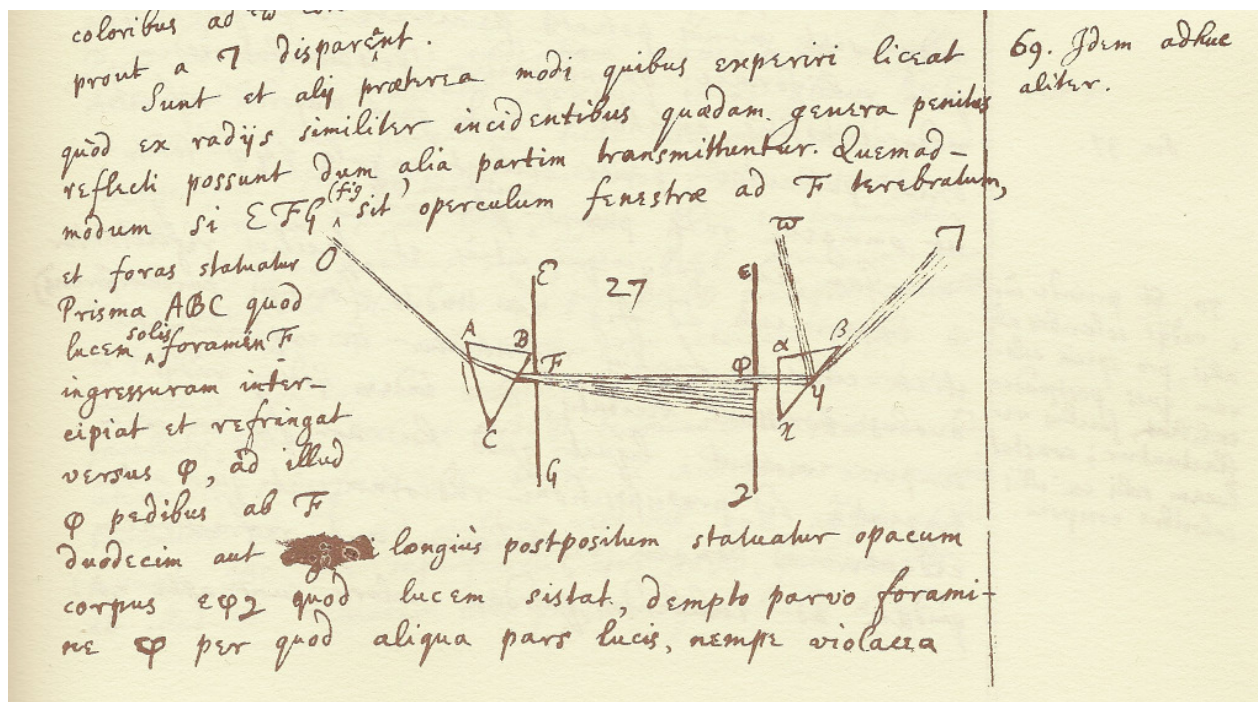 coloribus ad
prout a 7 disparent.
a
Sunt et alij præterea modi quibus experiri liceat
quòd ex radijs similiter incidentibus quædam genera penitùs
reflecti possunt dum alia partim transmittuntur. Quemad-
modum si EFG (fig ) sit operculum fenestræ ad F terebratum,
et foras statuatur
Prisma ABC quod
lucem solis foramen F
ingressuram inter-
cipiat et refringat
versus φ, ad illud
φ pedibus ab F
duodecim aut longiùs postpositum statuatur opacum
corpus εφ2 quod lucem sistat, dempto parvo forami-
ne φ per quod aliqua pars lucis, nempe violacea
69. Idem adhuc
aliter.
O
E
27
ε
ϖ
7
A
B
F
φ
α
β
C
G
2
χ
γ